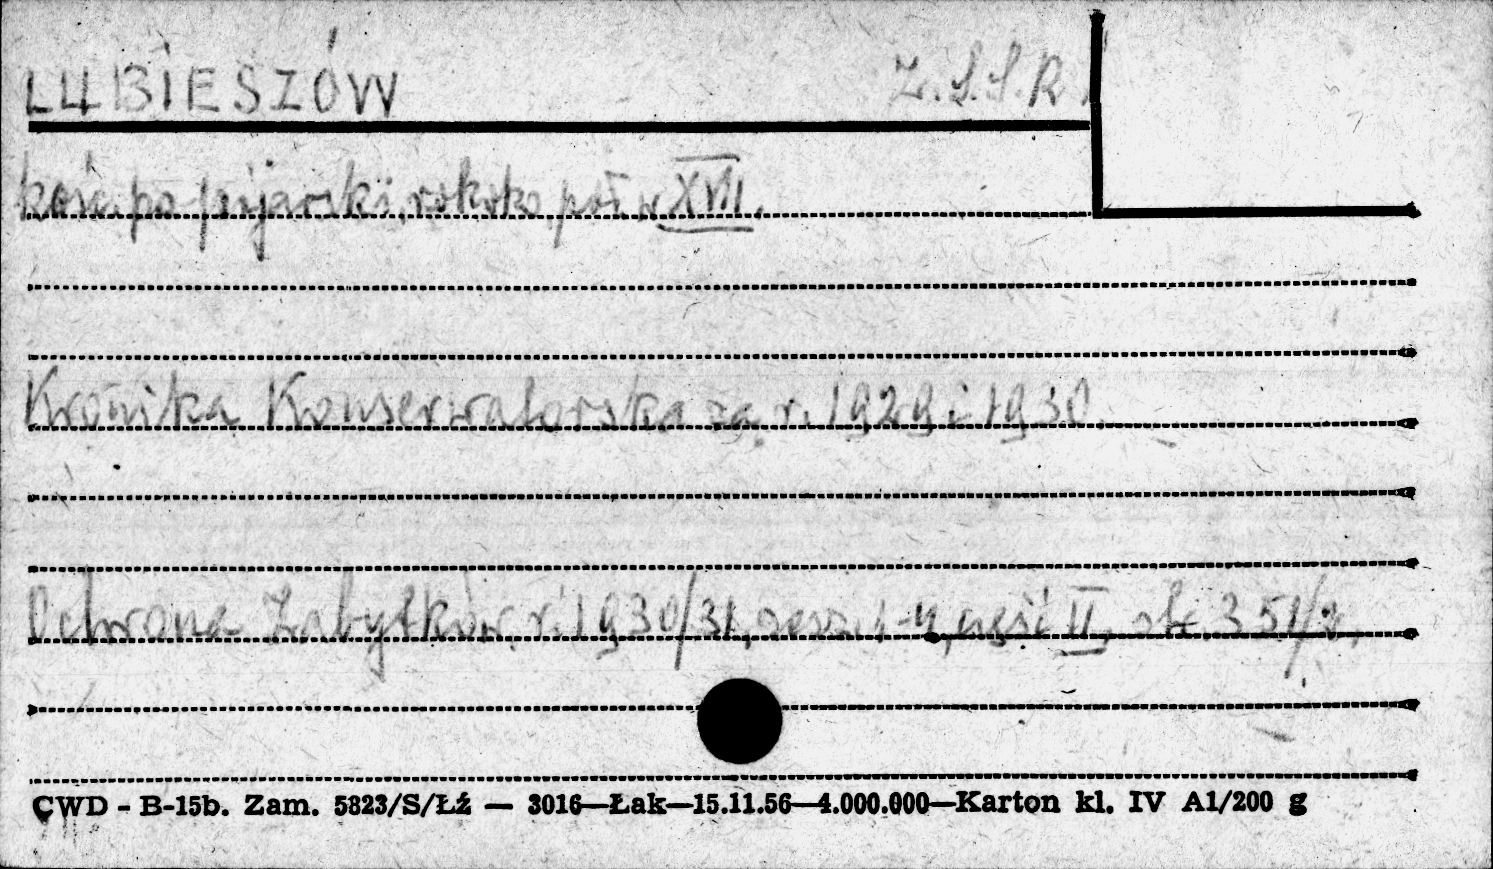 LUBIESZÓW Z.S.S.R.
kośc. po pijarski, rokoko, poł. w XVII.
Kronika Konserwatorska za r. 1929 i 1930.
Ochrona Zabytków, r. 1930/31, zesz. 1-4, część II, str. 351/2.
CWD - B-15b. Zam. 5823/S/Łź — 3016—Łak—15.11.56—4.000.000—Karton kl. IV A1/200 g